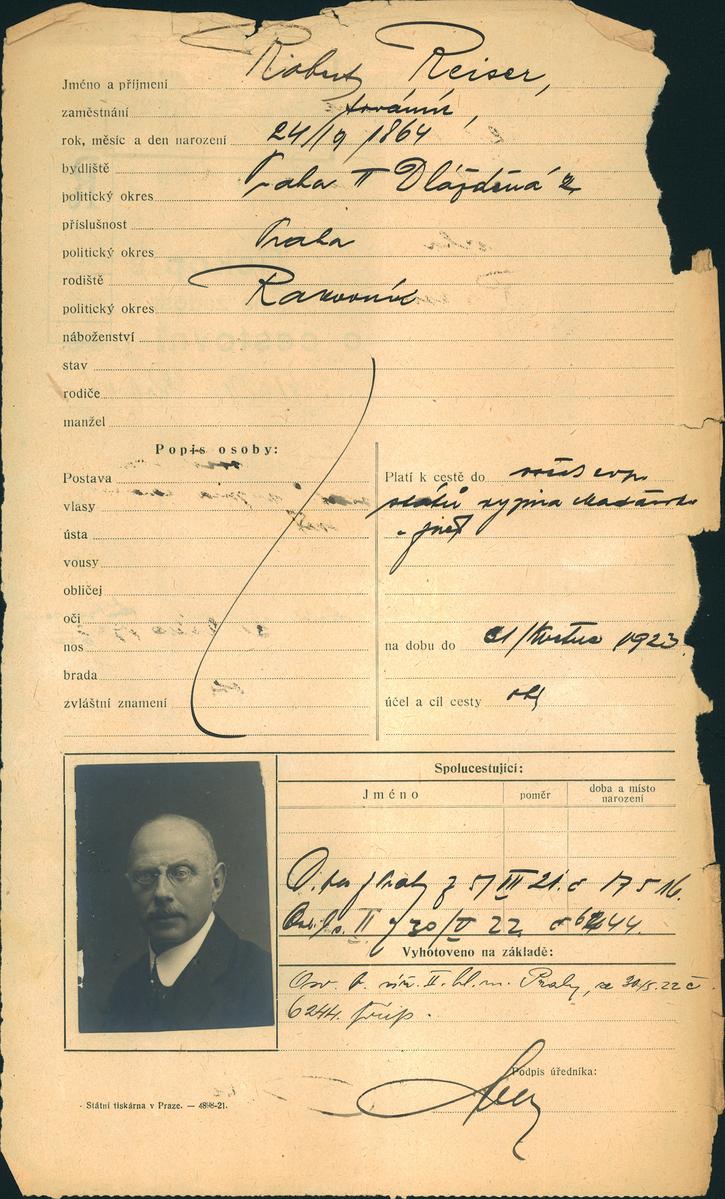 Jméno a příjmení Robert Reiser,
zaměstnání továrník,
rok, měsíc a den narození 24/9 1864
bydliště Praha II Dlážděná 2
politický okres
příslušnost
politický okres Praha
rodiště
politický okres Rakovník
náboženství
stav
rodiče
manžel
Popis osoby:
Postava
vlasy
ústa
vousy
obličej
oči
nos
brada
zvláštní znamení
Platí k cestě do všech evr.
států vyjma
na dobu do 1923
účel a cíl cesty obch
Spolucestující:
Jméno poměr doba a místo narození
z 5/III 21. č 17516.
II z 30/V 22 č 6244.
Vyhotoveno na základě:
Osv. II. hl. m. Prahy, ze 30/5. 22 č.
6244.
Podpis úředníka:
Státní tiskárna v Praze. — 4898-21.